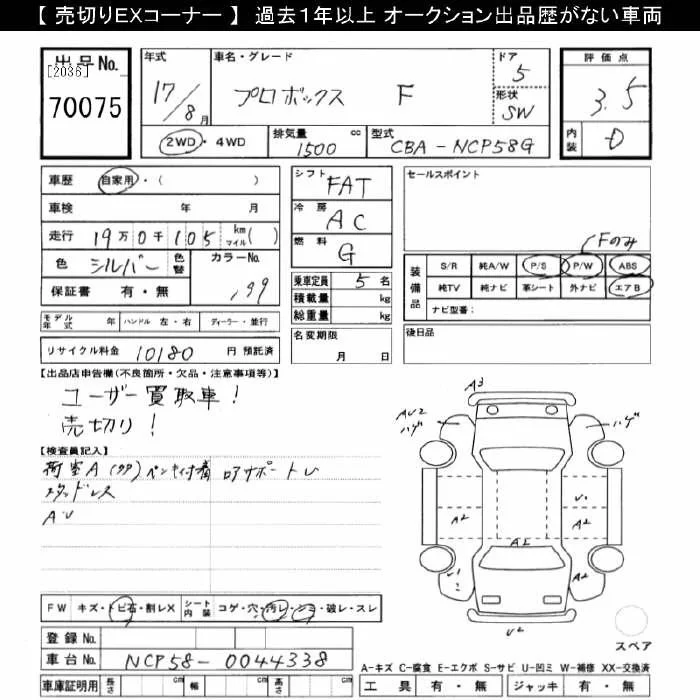 【 売切りEXコーナー 】 過去１年以上 オークション出品歴がない車両
出品No.
[2036]
70075
年式 17/8月
車名・グレード プロボックス F
ドア 5
形状 SW
評価点 3.5
内装 D
2WD・4WD
排気量 1500 cc
型式 CBA-NCP58G
車歴 自家用・( )
車検 年 月
走行 19万0千105 km マイル( )
色 シルバー 色替 カラーNo. 199
保証書 有・無
モデル年式 年 ハンドル 左・右 ディーラー・並行
リサイクル料金 10180 円 預託済
シフト FAT
冷房 AC
燃料 G
乗車定員 5 名
積載量 kg
総重量 kg
名変期限 月 日
セールスポイント
Fのみ
装備品
S/R 純A/W P/S P/W ABS
純TV 純ナビ 革シート 外ナビ エアB
ナビ型番:
後日品
【出品店申告欄(不良箇所・欠品・注意事項等)】
ユーザー買取車!
売切り!
【検査員記入】
荷室A(タタ)ペンキ付着 ロアサポートレ
スタッドレス
AU
A3
AU2
ハゲ
ハゲ
A2
A2
U1
A2
A2
U2
スペア
FW キズ・トビ石・割レX シート内装 コゲ・穴・汚レ・シミ・破レ・スレ
登録No.
車台No. NCP58-0044338
車庫証明用 長さ cm 幅 cm 高さ cm
A-キズ C-腐食 E-エクボ S-サビ U-凹ミ W-補修 XX-交換済
工具 有・無 ジャッキ 有・無